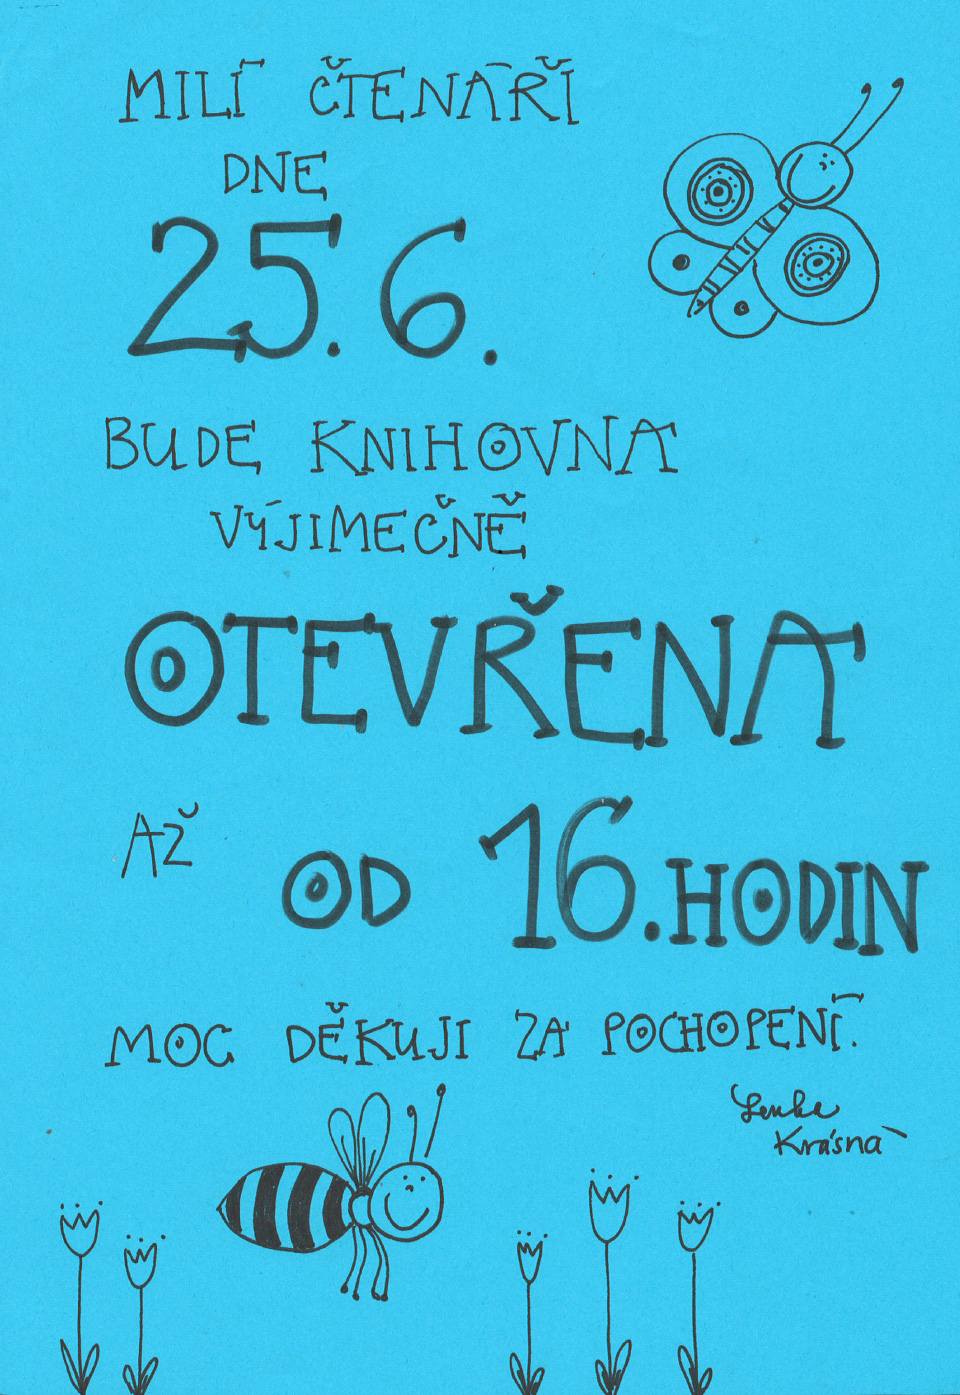 MILÍ ČTENÁŘI
DNE
25.6.
BUDE KNIHOVNA
VÝJIMEČNĚ
OTEVŘENA
AŽ OD 16.HODIN
MOC DĚKUJI ZA POCHOPENÍ.
Lenka
Krásná